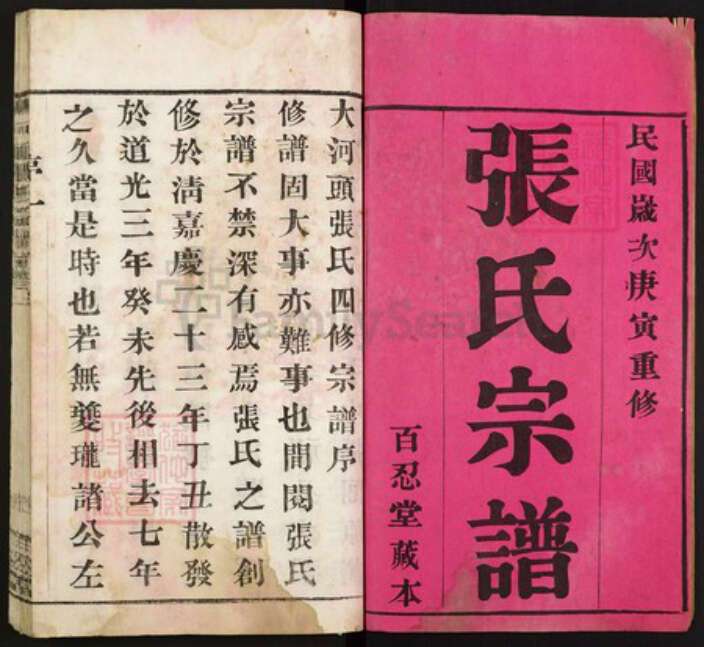 民國歲次庚寅重修
張氏宗譜
百忍堂藏本
大河頭張氏四修宗譜序
修譜固大事亦難事也間閱張氏
宗譜不禁深有感焉張氏之譜創
修於清嘉慶二十三年丁丑散發
於道光三年癸未先後相去七年
之久當是時也若無雙瓏諸公左
序一
FamilySearch